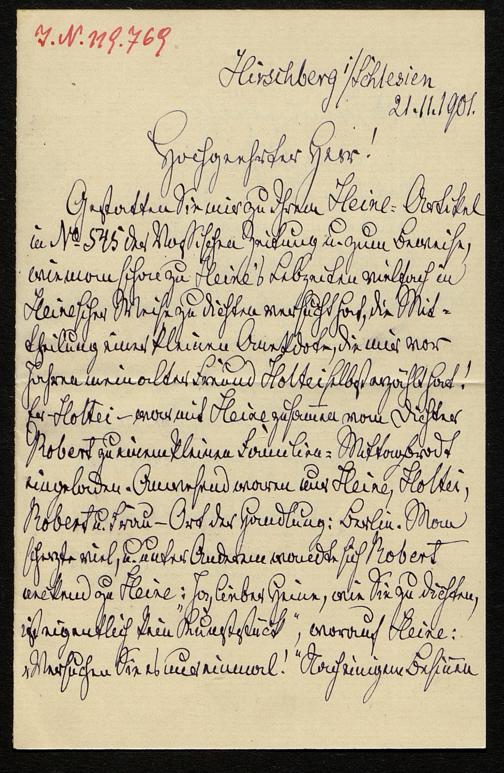 J. N. 119.769
Hirschberg i/Schlesien
21.11.1901.
Hochgeehrter Herr!
Gestatten Sie mir zu Ihrem Heine-Artikel
in No 545 der Vossischen Zeitung u. zum Beweise,
wie man schon zu Heine's Lebzeiten vielfach in
Heinescher Weise zu dichten versucht hat, die Mit-
theilung einer kleinen Anekdote, die mir vor
Jahren mein alter Freund Holtei selbst erzählt hat!
Er - Holtei - war mit Heine zusammen vom Dichter
Robert zu einem kleinen Familien-Mittagbrodt
eingeladen. Anwesend waren nur Heine, Holtei,
Robert u. Frau - Ort der Handlung: Berlin. Man
scherzte viel, u. unter Anderem wandte sich Robert
neckend zu Heine: "Ja, lieber Heine, wie Sie zu dichten,
ist eigentlich kein Kunststück", worauf Heine:
"Versuchen Sie es nur einmal!" Nach einigem Besinnen